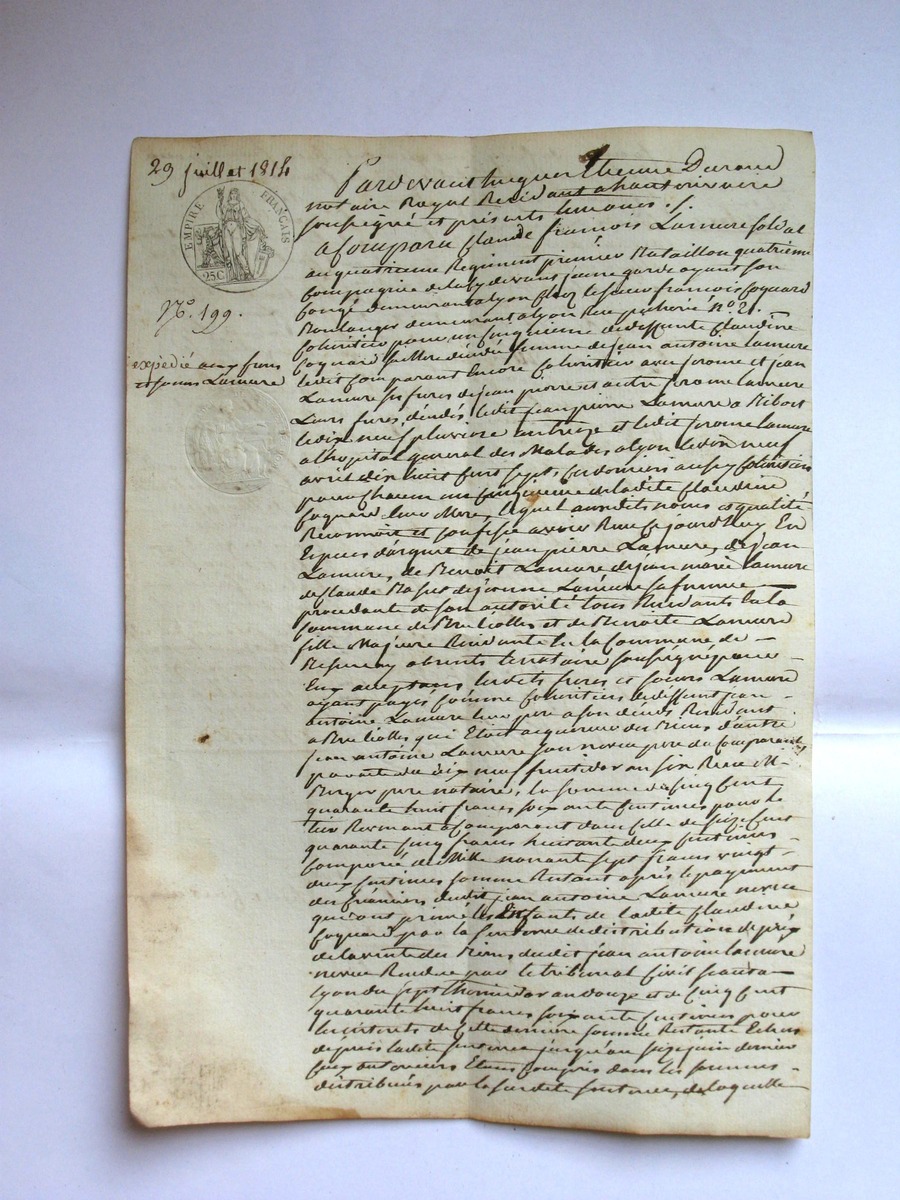 29 juillet 1814
EMPIRE FRANÇAIS
25 C
N.º 199.
expédié aux freres
et soeurs Lamure
Pardevant Etienne Durand
notaire Royal Residant a
soussigné et presents temoins
a Comparu Claude François Lamure soldat
au quatrieme Regiment premier Bataillon quatrieme
Compagnie de la jeune garde ayant son
Congé demeurant a Lyon Chez le sieur françois Coquard
Boulanger demeurant a Lyon Rue nº 21.
Cohéritier pour un Cinquieme de deffunte Claudine
Coquard sa Mere décédée femme de jean antoine Lamure
ledit Comparant encore Cohéritier avec jerome et jean
Lamure ses freres de jean pierre et autre jerome Lamure
Leurs freres décédés ledit jean pierre Lamure a
le dix neuf pluviose an treize et ledit jerome Lamure
a l'hopital general des Malades a Lyon le dix neuf
avril dix huit Cent sept, Ces derniers aussy Cohéritiers
pour Chacun un Cinquieme de ladite Claudine
Coquard leur Mere, lequel auxdits noms et qualité
Reconnoit et Confesse avoir Reçu Cejourd'huy En
Especes d'argent de jean pierre Lamure, de jean
Lamure, de Benoit Lamure de jean marie Lamure
de Claude et d'jeanne Lamure sa femme
procedant de son autorité tous Residants En la
Commune de et de Benoite Lamure
fille Majeure Residante En la Commune de
absents le notaire soussigné pour
Eux acceptant lesdits freres et soeurs Lamure
ayant payés Comme Cohéritiers de deffunt jean
antoine Lamure leur pere a son décés Residant
a qui Etoit acquereur des Biens d'autre
jean antoine Lamure son neveu pere du Comparant
par acte du dix neuf fructidor an six Reçu M.
Berger pere notaire, la somme de Cinq Cent
quarante huit francs soixante Centimes pour le
tiers Revenant a Comparant dans Celle de seize Cent
quarante Cinq francs huitante deux Centimes
Composée de Mille nonante sept francs vingt
deux Centimes somme Restant après le payement
des Créanciers dudit jean antoine Lamure neveu
qui ont primé les Enfants de ladite Claudine
Coquard par la sentence de distribution de prix
de la vente des Biens dudit jean antoine Lamure
neveu Rendue par le tribunal Civil seant a
Lyon du sept thermidor an douze et de Cinq Cent
quarante huit francs soixante Centimes pour
les interets de Cette derniere somme Restante Echus
depuis ladite sentence jusqu'au seize juin dernier
Ceux anterieurs Etant Compris dans les sommes
distribuées par la susdite sentence, de laquelle